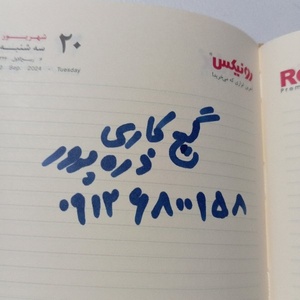 شهریور
۲۰
سه شنبه
Sep 2024 Tuesday
رونیکس
گچ کاری
ذره پور
۰۹۱۲۶۸۰۰۱۵۸